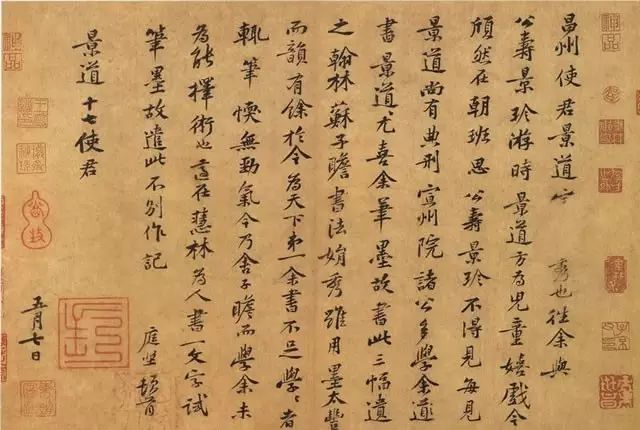 昌州使君景道宗秀也往余與
公壽景珍游時景道方為兒童嬉戲今
頎然在朝班思公壽景珍不得見每見
景道尚有典刑宣州院諸公多學余
書景道尤喜余筆墨故書此三幅遺
之翰林蘇子瞻書法娟秀雖用墨太豐
而韻有餘於今為天下弟一余書不足學〻者
輒筆愞無勁氣今乃舍子瞻而學余未
為能擇術也適在慧林為人書一文字試
筆墨故遣此不別作記
庭堅頓首
景道十七使君
五月七日